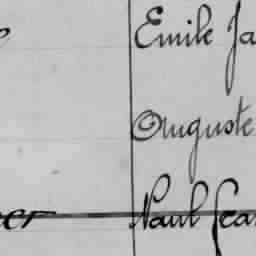 Emile Ja
Auguste
er Paul Jea